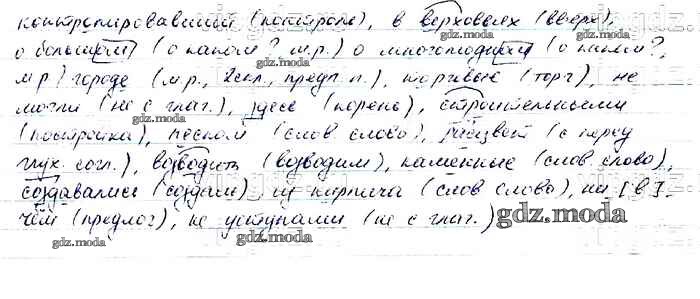 контролировавший (контроль), в верховьях (вверх),
о большом (о каком? м.р.) о многолюдном (о каком?,
м.р) городе (м.р., 2скл., предл. п.), торговые (торг), не
могли (не с глаг.), здесь (корень), строительными
(постройка), песком (слов слово), расцвет (с перед
глух. согл.), возводить (возводим), каменные (слов слово),
создавались (создам), из кирпича (слов слово), ни [в]
чём (предлог), не уступали (не с глаг.)
gdz.moda
gdz.moda
gdz.moda
gdz.moda
gdz.moda